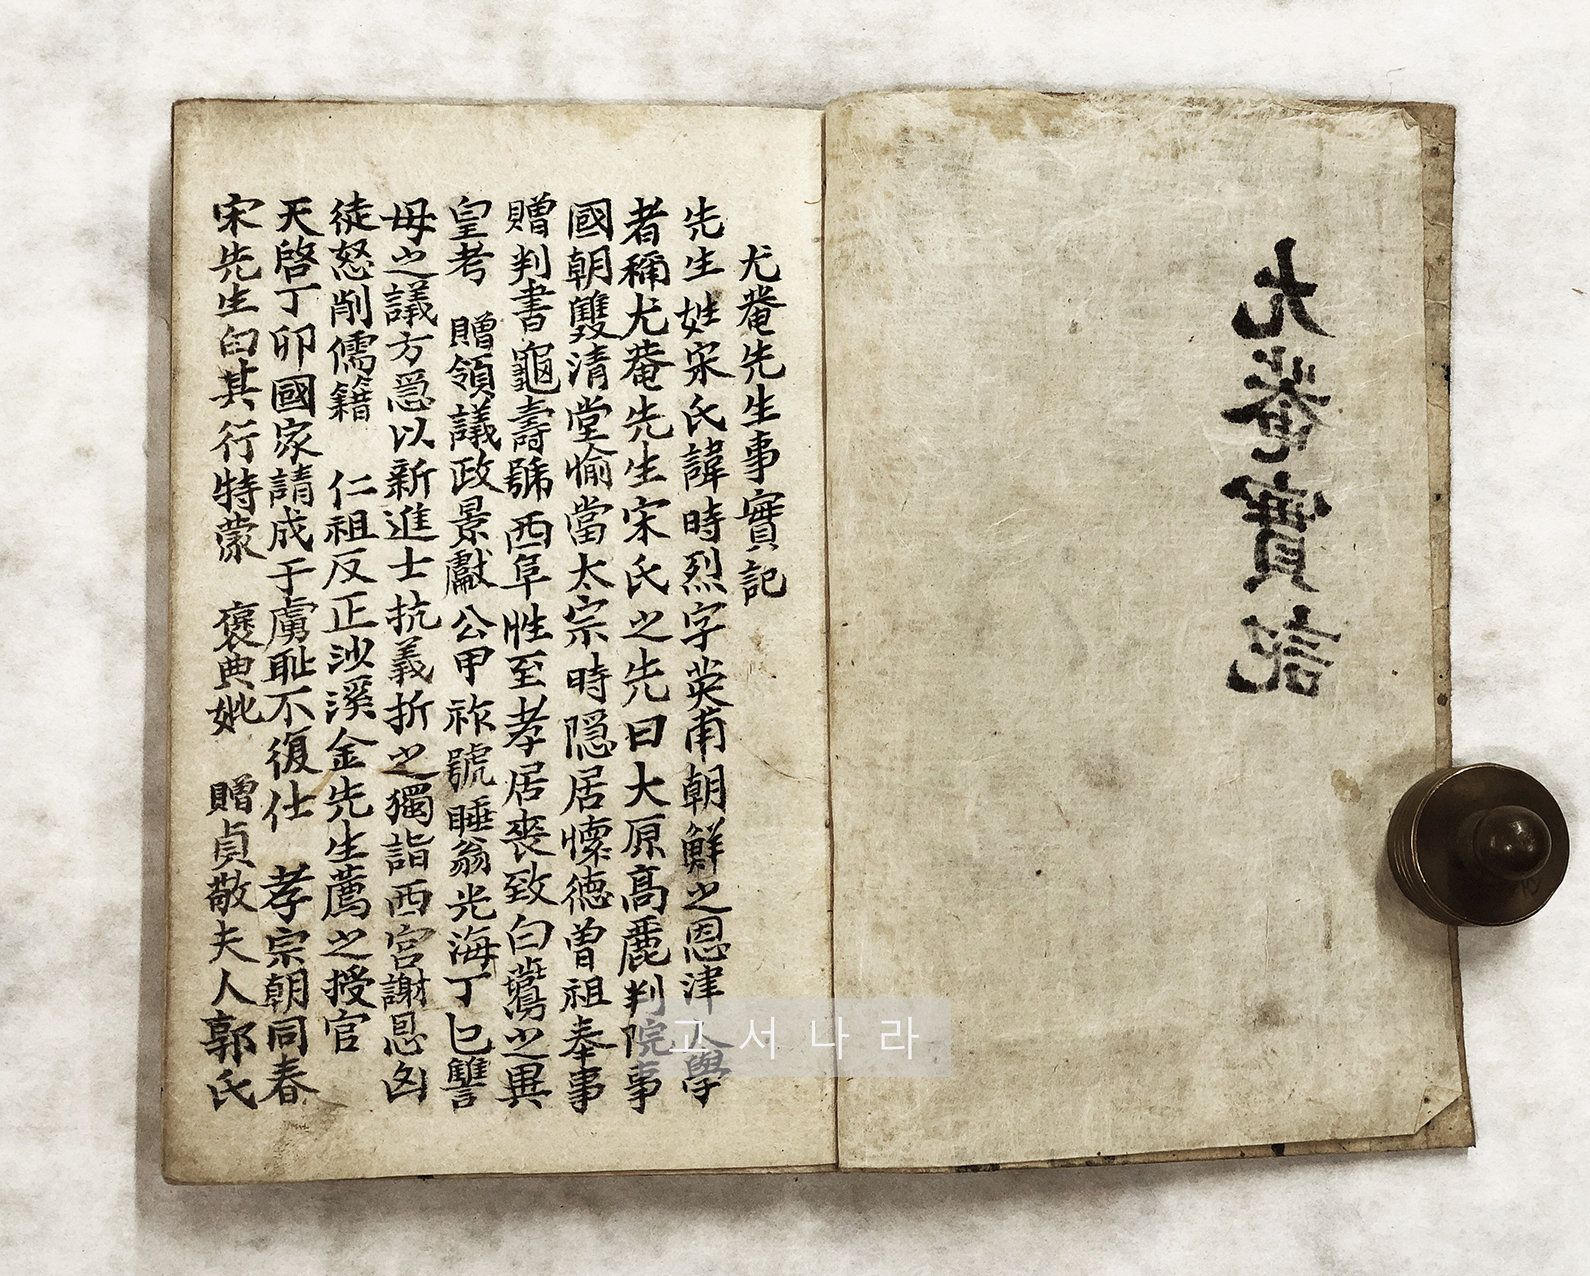 尤菴實記
尤菴先生事實記
先生姓宋氏諱時烈字英甫朝鮮之恩津人學
者稱尤菴先生宋氏之先曰大原高麗判院事
國朝雙清堂愉當太宗時隱居懷德曾祖奉事
贈判書龜壽號西阜性至孝居喪致白鷰之異
皇考 贈領議政景獻公甲祚號睡翁光海丁巳讐
母之議方急以新進士抗義折之獨詣西宮謝恩凶
徒怒削儒籍 仁祖反正沙溪金先生薦之授官
天啓丁卯國家請成于虜恥不復仕 孝宗朝同春
宋先生白其行特蒙 褒典妣 贈貞敬夫人郭氏
고서나라